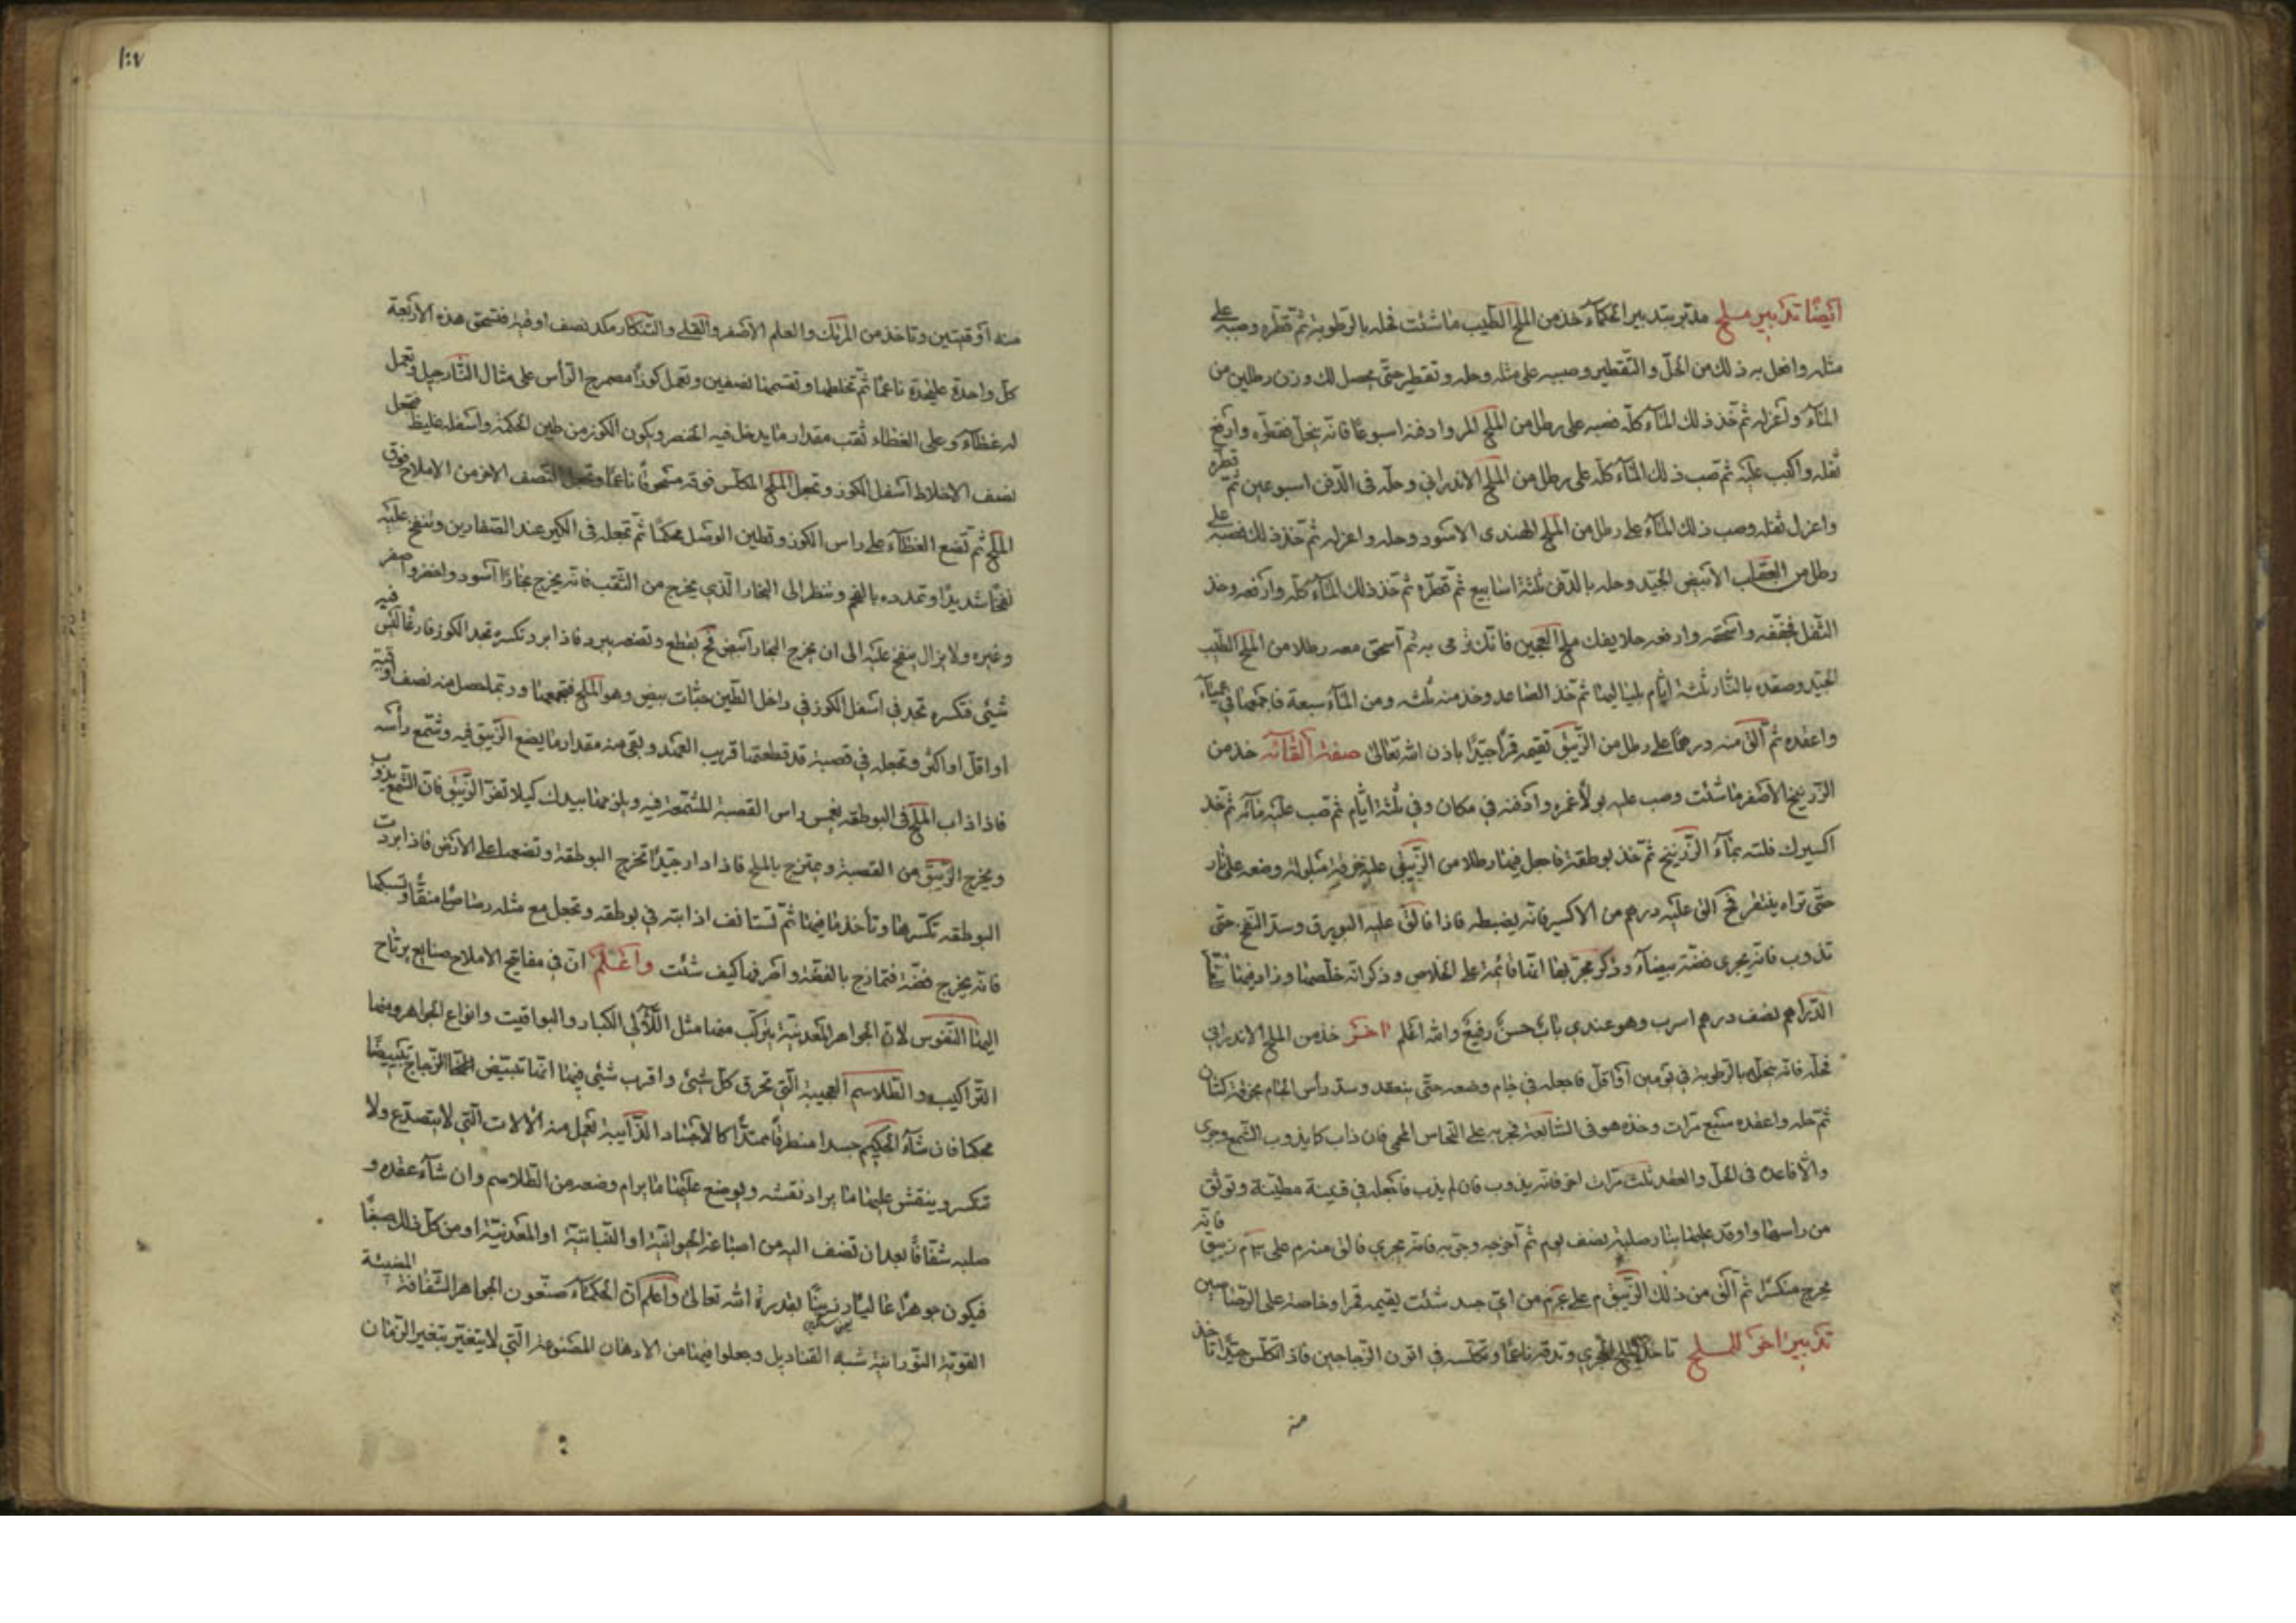 أيضًا تدبير ملح مدبر بتدبير الحكماء خذ من الملح الطيب ما شئت فحله بالرطوبة ثم قطره وصبه على
مثله وافعل به ذلك من الحل والتقطير وصبه على مثله وحله وتقطير حتى يحصل لك وزن رطلين من
الماء واعزله ثم خذ ذلك الماء كله فصبه على رطل من الملح المر وادفنه اسبوعا فانه ينحل فقطره وارفع
ثفله واكتب عليه ثم صب ذلك الماء كله على رطل من الملح الاندراني وحله في الدفن اسبوعين ثم قطره
واعزل ثفله وصب ذلك الماء على رطل من الملح الهندي الاسود وحله واعزله ثم خذ ذلك فصبه على
رطل من العقاب الابيض الجيد وحله بالدفن ثلثة اسابيع ثم قطره ثم خذ ذلك الماء كله وارفعه وخذ
الثفل فجففه واسحقه وارفعه ملح العجين ثم اسحق معه رطلا من الملح الطيب
الجيد وصعده بالنار ثلثة ايام بلياليها ثم خذ الصاعد وخذ منه ثلثه ومن الماء سبعة فاجمعها في عمياء
واعقده ثم الق منه درهما على رطل من الزيبق تقيمه قمرا جيدا باذن الله تعالى صفة القائه خذ من
الزرنيخ الاصفر ما شئت وصب عليه بولا غمره وادفنه في مكان دفى ثلثة ايام ثم صب عليه مائه ثم خذ
اكسيرك فلته بماء الزرنيخ ثم خذ بوطقة فاجعل فيها رطلا من الزيبق عليه خرقة مبلولة وضعه على نار
حتى تراه ينتفر فح الق عليه درهم من الاكسير فانه يضبطه فاذا فالق عليه البورق وسد النفخ حتى
تذوب فانه يجرى فضة بيضاء وذكر مجربها انها قائمة على الخلاص وذكر انه خلصها وزاد فيها
الدراهم نصف درهم اسرب وهو عندي باب حسن رفيع والله اعلم اخر خذ من الملح الاندراني
فحله فانه ينحل بالرطوبة في يومين او اقل فاجعله في جام وضعه حتى ينعقد وسد رأس الجام بخرقة كتان
ثم حله واعقده سبع مرات وخذه هو في السابعة فجربه على النحاس المحمى فان ذاب كما يذوب الشمع وجرى
والا فاعده في الحل والعقد ثلث مرات اخر فانه يذوب فان لم يذب فاجعله في قنينة مطينة وتوثق
من راسها واوقد عليها بنار صلبة نصف يوم ثم اخرجه وجربه فانه يجري فالق منه م على زيبق فانه
يخرج منكسرا ثم الق من ذلك الزيبق م على من اي جسد شئت يقيمه قمرا وخاصة على الرصاصين
تدبير اخر للملح تاخذ الملح الحجري وتدقه ناعما وتكلسه في اتون الزجاجين فاذا تكلس جيدا تاخذ
منه
١٠٧
منه أوقيتين وتاخذ من المرتك والعلم الاصفر والقلي والتنكار مكد نصف اوقية فتسحق هذه الاربعة
كل واحدة عليحدة ناعما ثم تخلطها وتقسمها نصفين وتعمل كوزا الرأس على مثال النارجيل وتعمل
له غطاء وعلى الغطاء ثقب مقدار ما يدخل فيه الخنصر ويكون الكوز من طين الحكمة واسفله غليظ فتجعل
نصف الاخلاط اسفل الكوز وتجعل الملح المكلس فوقه مسحوقا ناعما وتجعل النصف الاخر من الاملاح فوق
الملح ثم تضع الغطاء على راس الكوز وتطين الوصل محكما ثم تجعله في الكير عند الصفارين وتنفخ عليه
نفخا شديدا وتمدده بالفحم وتنظر الى البخار الذي يخرج من الثقب فانه يخرج بخارا اسود واخضر واصفر
وغيره ولا يزال ينفخ عليه الى ان يخرج البخار ابيض فح يقطع وتصبر يبرد فاذا ابرد وتكسره تجد الكوز فارغا ليس فيه
شيئ فتكسره تجد في اسفل الكوز في داخل الطين حبات بيض وهو الملح فتجمعها وربما حصل منه نصف اوقية
او اقل او اكثر وتجعله في قصبة قد قطعتها قريب العقد وبقى منه مقدار ما يضع الزيبق فيه وتشمع رأسه
فاذا ذاب الملح في البوطقه يغمس راس القصبة المشمعة فيه بيدك كيلا تفر الزيبق فان الشمع يذوب
ويخرج الزيبق من القصبة ويمتزج بالملح فاذا دار جيدا تخرج البوطقة وتضعها على الارض فاذا ابردت
البوطقه تكسرها وتأخذ ما فيها ثم تستانف اذابته في بوطقه وتجعل مع مثله رصاصا منقا وتسبكها
فانه يخرج فضة فتمازج بالفضة واصرفها كيف شئت واعلم ان في مفاتيح الاملاح صنايع يرتاح
اليها النفوس لان الجواهر المعدنية يتركب منها مثل اللآلي الكبار واليواقيت وانواع الجواهر ومنها
التراكيب والطلاسم العجيبة التي تحرق كل شيئ واقرب شيئ فيها انها تبييض الزجاج تبييضا
محكما فان شاء الحكيم جسدا منطرقا ممتدا كالاجساد الذايبة تعمل منه الآلات التي لا يتصدع ولا
تنكسر وينقش عليها ما يراد نقشه ويوضع عليها ما يرام وضعه من الطلاسم وان شاء عقده و
صلبه شفافا بعد ان تضف اليه من اصباغه الحيوانية او النباتية او المعدنية او من كل ذلك صبغا
فيكون جوهرا غاليا رزينا بقدرة الله تعالى واعلم ان الحكماء صنعون الجواهر الشفافة المضيئة
القوية النورانية شبه القناديل وجعلوا فيها من الادهان المصنوعة التي لا يتغير بتغير الزمان